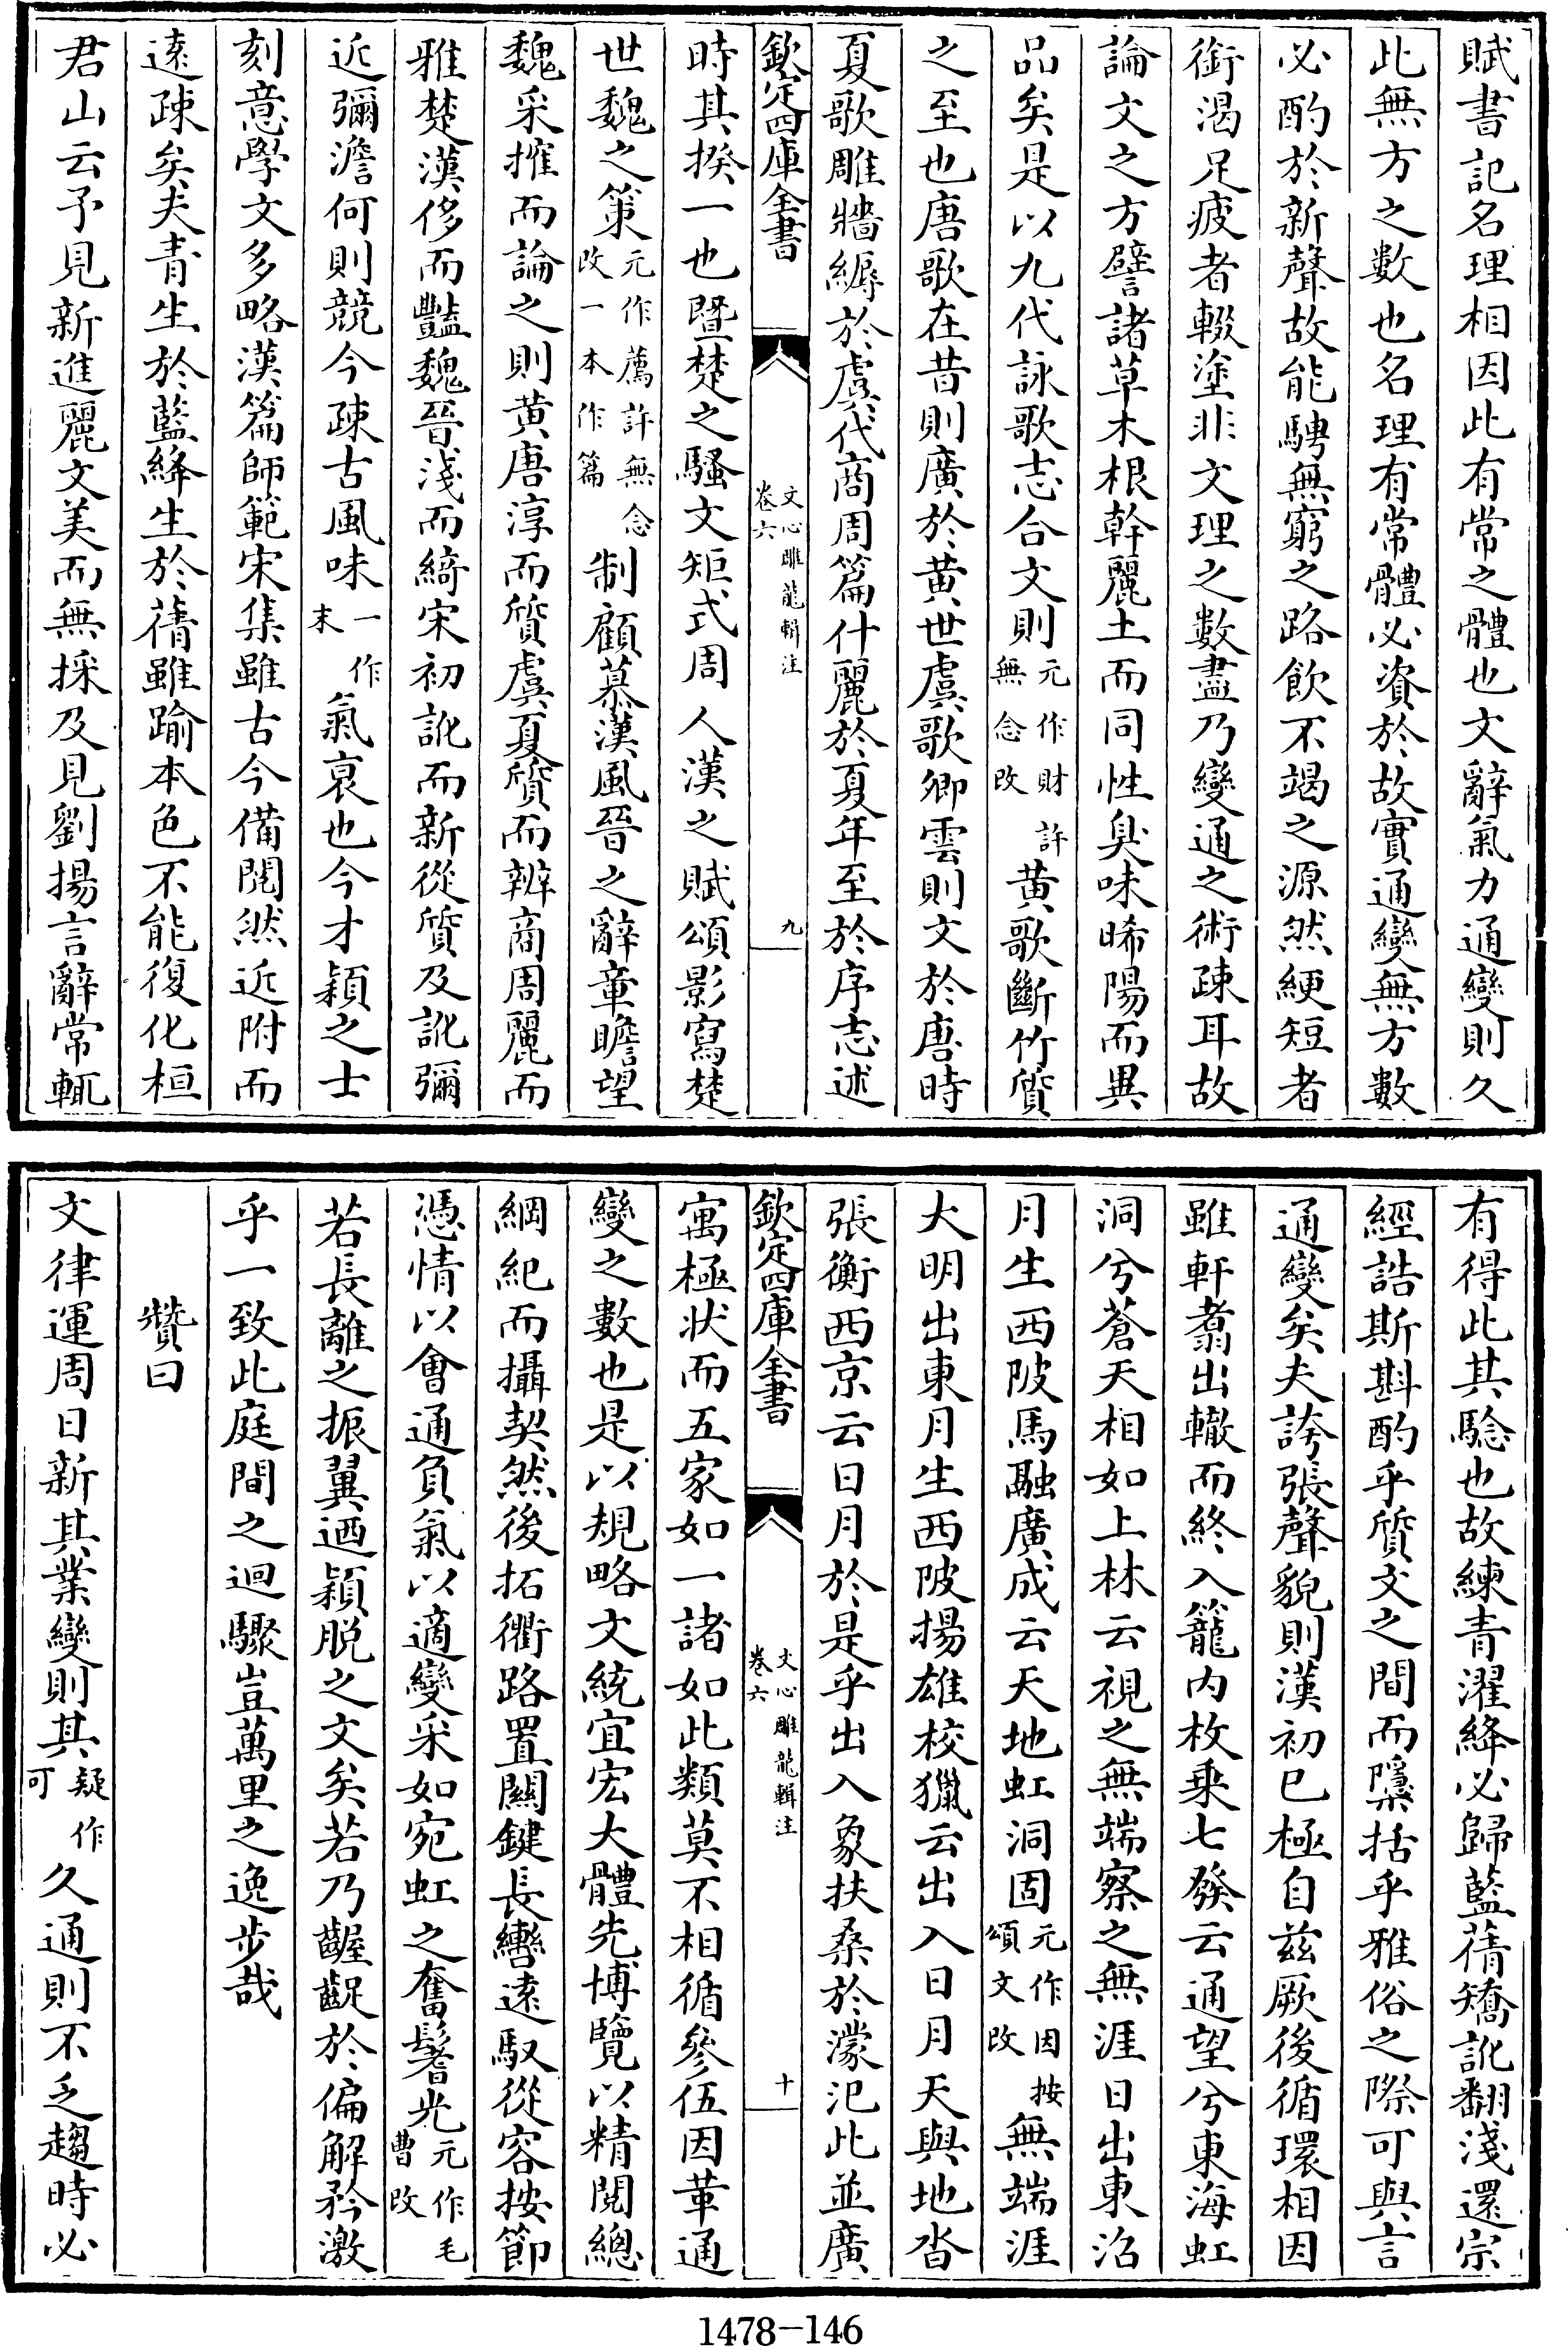 賦書記名理相因此有常之體也文辭氣力通變則久
此無方之數也名理有常體必資於故實通變無方數
必酌於新聲故能騁無窮之路飲不竭之源然綆短者
銜渴足疲者輟塗非文理之數盡乃變通之術疎耳故
論文之方譬諸草木根幹麗土而同性臭味晞陽而異
品矣是以九代詠歌志合文則元作財許無念改黄歌斷竹質
之至也唐歌在昔則廣於黄世虞歌卿雲則文於唐時
夏歌雕牆縟於虞代商周篇什麗於夏年至於序志述
欽定四庫全書 文心雕龍輯注卷六 九
時其揆一也暨楚之騷文矩式周人漢之賦頌影寫楚
世魏之策元作薦許無念改一本作篇制顧慕漢風晉之辭章瞻望
魏采搉而論之則黄唐淳而質虞夏質而辨商周麗而
雅楚漢侈而豔魏晉淺而綺宋初訛而新從質及訛彌
近彌澹何則競今疎古風味一作末氣衰也今才穎之士
刻意學文多略漢篇師範宋集雖古今備閱然近附而
遠疎矣夫青生於藍絳生於蒨雖踰本色不能復化桓
君山云予見新進麗文美而無採及見劉揚言辭常輒
有得此其騐也故練青濯絳必歸藍蒨矯訛翻淺還宗
經誥斯斟酌乎質文之間而隱括乎雅俗之際可與言
通變矣夫誇張聲貌則漢初已極自兹厥後循環相因
雖軒翥出轍而終入籠内枚乗七發云通望兮東海虹
洞兮蒼天相如上林云視之無端察之無涯日出東沼
月生西陂馬融廣成云天地虹洞固元作因按頌文改無端涯
大明出東月生西陂揚雄校獵云出入日月天與地沓
張衡西京云日月於是乎出入象扶桑於濛汜此並廣
欽定四庫全書 文心雕龍輯注卷六 十
寓極狀而五家如一諸如此類莫不相循參伍因革通
變之數也是以規略文統宜宏大體先博覽以精閱總
綱紀而攝契然後拓衢路置關鍵長轡遠馭從容按節
憑情以會通負氣以適變采如宛虹之奮鬐光元作毛曹改
若長離之振翼迺穎脱之文矣若乃齷齪於偏解矜激
乎一致此庭間之迴驟豈萬里之逸步哉
贊曰
文律運周日新其業變則其疑作可久通則不乏趨時必
1478－146